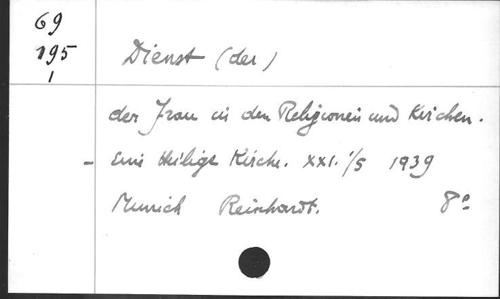 69
195
1
Dienst (der)
der Frau in den Religionen und Kirchen.
- Eine Heilige Kirche. XXI. 1/5 1939
Munich Reinhardt. 8°